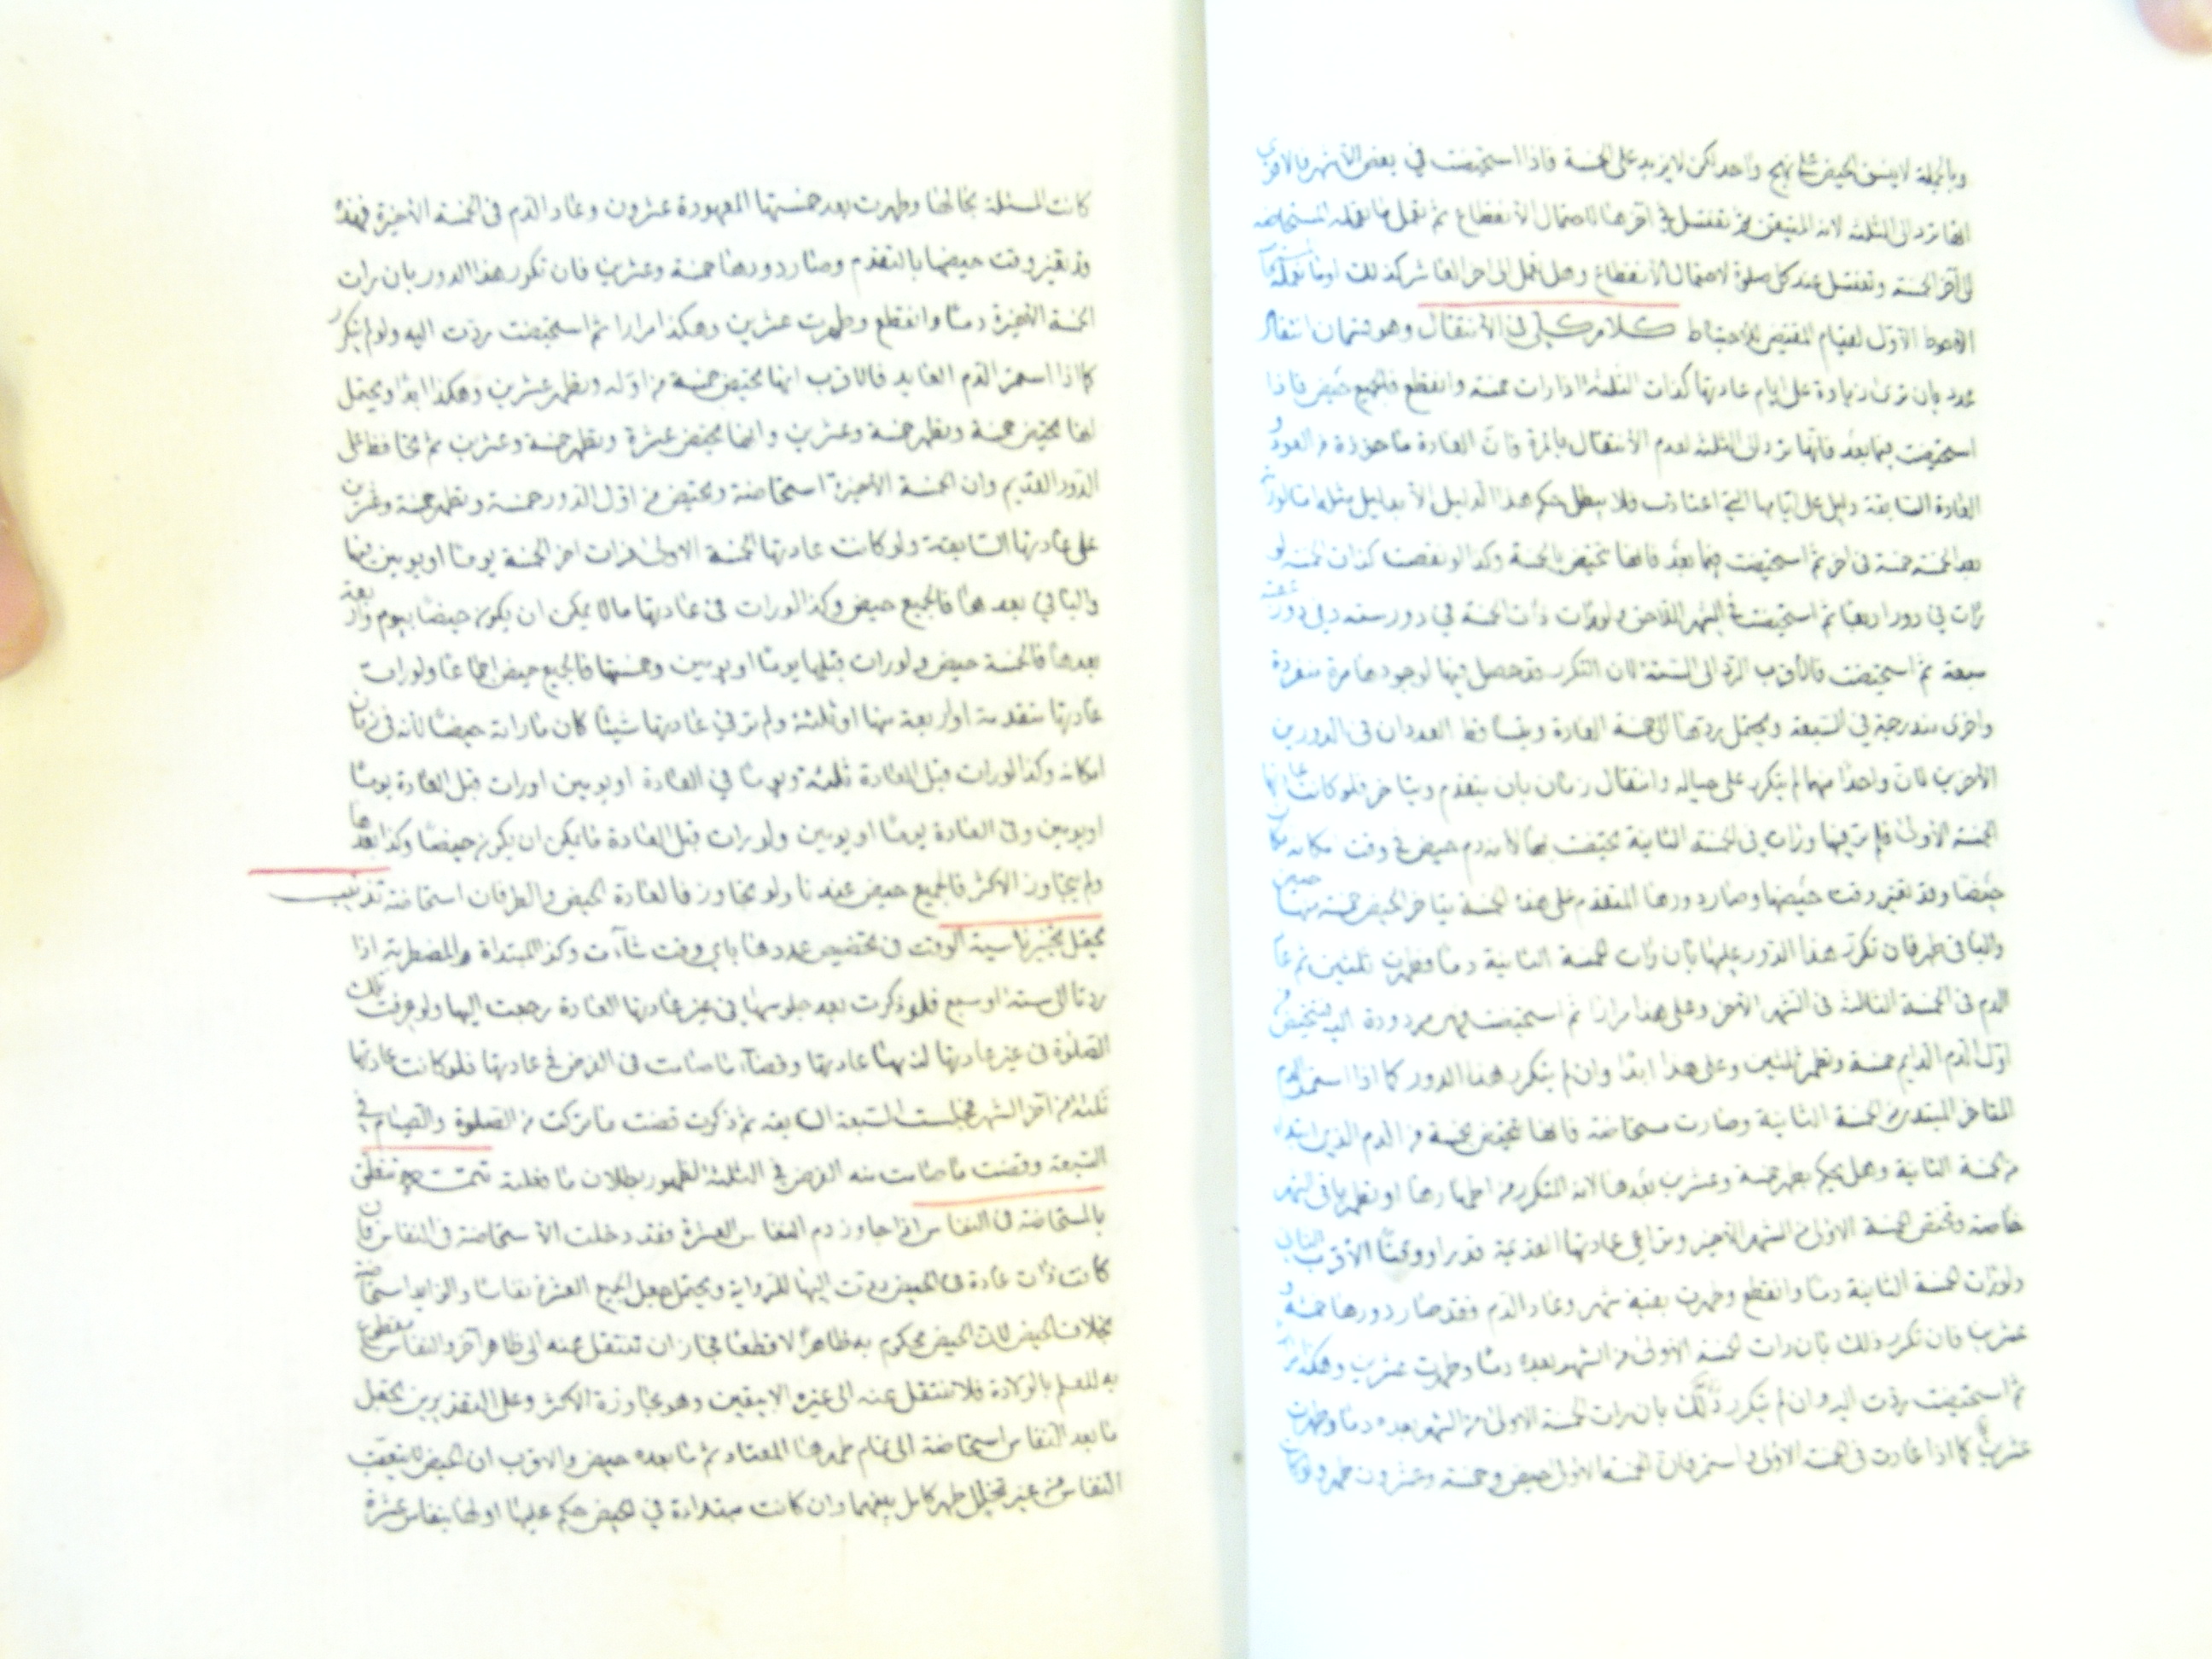 وبالجملة لا يتسق الحيض على نهج واحد لكن لا يزيد على الخمسة فاذا استحيضت في بعض الأشهر فالاقرب
انها ترد الى الثلثة لانه المتيقن ثم تغتسل في آخرها لاحتمال الأنقطاع ثم تعمل ما تعمله المستحاضة
الى آخر الخمسة وتغتسل عند كل صلوة لاحتمال الأنقطاع وهل تعمل الى اخر العاشر كذلك او ما تعمله
الاحوط الاول لقيام المقتضي للأحتياط كلام كلي في الأنتقال وهو قسمان انتقال
عدد بان ترى زيادة على ايام عادتها كذات الثلثة اذا رات خمسة وانقطع فالجميع حيض فاذا
استحيضت فيما بعد فانها ترد الى الثلثة لعدم الأنتقال بالمرة فان العادة ماخوذة من العود و
العادة السابقة دليل على ايامها التي اعتادت فلا يبطل حكم هذا الدليل الأ بدليل مثله اما لو رات
بعد الخمسة خمسة في اخر ثم استحيضت فيما بعد فانها تحيض بالخمسة وكذا لو نقصت كذات الخمسة لو
رات في دور اربعا ثم استحيضت في الشهر اللاحق ولو رات ذات الخمسة في دور ستة وفي دور عقبه
سبعة ثم استحيضت فالأقرب الرد الى الستة لان التكرر قد حصل فيها لوجودها مرة منفردة
واخرى مندرجة في السبعة ويحتمل ردها الى خمسة العادة ويتساقط العددان في الدورين
الأخرين لان واحدا منهما لم يتكرر على حياله وانتقال زمان بان يتقدم ويتاخر فلو كانت عادتها
الخمسة الأولى فلم تر فيها ورات في الخمسة الثانية تحيضت بها لانه دم حيض في وقت امكانه فكان
حيضا وقد تغير وقت حيضها وصار دورها المتقدم على هذه الخمسة بتاخر الحيض خمسة منها حيض
والباقي طهر فان تكرر هذا الدور عليها بان رات الخمسة الثانية دما وطهرت ثلثين ثم عاد
الدم في الخمسة الثالثة في الشهر الآخر وعلى هذا مرارا ثم استحيضت فهي مردودة اليه فتحيض من
اول الدم الدايم خمسة وتطهر ثلثين وعلى هذا ابدا وان لم يتكرر هذا الدور كما اذا استمر الدم
المتاخر المبتدي في الخمسة الثانية وصارت مستحاضة فانها تحيض بخمسة من الدم الذي ابتدا
من الخمسة الثانية وهل يحكم بطهر خمسة وعشرين بعدها لانه المتكرر من اطهارها او تطهر باقي الشهر
خاصة وتحيض الخمسة الاولى من الشهر الأخير وتراعي عادتها القديمة قدرا ووقتا الأقرب الثاني
ولو رات الخمسة الثانية دما وانقطع وطهرت بقية شهر وعاد الدم فقد صار دورها خمسة و
عشرين فان تكرر ذلك بان رات الخمسة الاولى من الشهر بعده دما وطهرت عشرين وهكذا مرارا
ثم استحيضت ردت اليه وان لم يتكرر ذلك بان رات الخمسة الاولى من الشهر بعده دما وطهرت
عشرين كما اذا عادت في الخمسة الاولى واستمر فان الخمسة الاولى حيض وخمسة وعشرون طهر ولو كان
كانت المسئلة بحالها وطهرت بعد خمستها المعهودة عشرون وعاد الدم في الخمسة الأخيرة فهذه
قد تغير وقت حيضها بالتقدم وصار دورها خمسة وعشرين فان تكرر هذا الدور بان رات
الخمسة الأخيرة دما وانقطع وطهرت عشرين وهكذا مرارا ثم استحيضت ردت اليه ولو لم يتكرر
كما اذا استمر الدم العايد فالاقرب انها تحيض خمسة من اوله وتطهر عشرين وهكذا ابدا ويحتمل
انها تحيض خمسة وتطهر خمسة وعشرين وانها تحيض عشرة وتطهر خمسة وعشرين ثم تحافظ على
الدور القديم وان الخمسة الأخيرة استحاضة وتحيض من اول الدور خمسة وتطهر خمسة وعشرين
على عادتها السابقة ولو كانت عادتها الخمسة الاولى فرات اخر الخمسة يوما او يومين منها
والباقي بعدها فالجميع حيض وكذا لو رات في عادتها ما لا يمكن ان يكون حيضا بيوم واربعة
بعدها فالخمسة حيض ولو رات قبلها يوما او يومين وخمستها فالجميع حيض اجماعا ولو رات
عادتها متقدمة او اربعة منها او ثلثة ولم تر في عادتها شيئا كان ما راته حيضا لأنه في زمان
امكانه وكذا لو رات قبل العادة ثلثة ويوما في العادة او يومين او رات قبل العادة يوما
او يومين وفي العادة يوما او يومين ولو رات قبل العادة ما يمكن ان يكون حيضا وكذا بعدها
ولم يتجاوز الاكثر فالجميع حيض عندنا ولو تجاوز فالعادة الحيض والطرفان استحاضة تذنيب
يحتمل تخير ناسية الوقت في تخصيص عددها باي وقت شاءت وكذا المبتداة والمضطربة اذا
ردتا الى ستة او سبع فلو ذكرت بعد جلوسها في غير عادتها العادة رجعت اليها ولو عرفت تلك
الصلوة في غير عادتها لزمها عادتها وقضاء ما صامت في الفرض في عادتها فلو كانت عادتها
ثلثة من آخر الشهر فجلست السبعة السابقة ثم ذكرت قضت ما تركت من الصلوة والصيام في
السبعة وقضت ما صامت منه الفرض في الثلثة لظهور بطلان ما فعلته تتمة تتعلق
بالمستحاضة في النفاس اذا جاوز دم النفاس العشرة فقد دخلت الأستحاضة في النفاس فان
كانت ذات عادة في الحيض ردت اليها للرواية ويحتمل جعل الجميع العشرة نفاسا والزايد استحاضة
بخلاف الحيض لان الحيض محكوم به ظاهرا لا قطعا فجاز ان تنتقل عنه الى ظاهر آخر والنفاس مقطوع
به للعلم بالولادة فلا تنتقل عنه الى غيره الا بيقين وهو تجاوزة الاكثر وعلى التقديرين يجعل
ما بعد النفاس استحاضة الى تمام طهرها المعتاد ثم ما بعده حيض والاقرب ان الحيض لا يتعقب
النفاس من غير تخلل طهر كامل بينهما وان كانت مبتداءة في الحيض حكم عليها اولها بنفاس عشرة